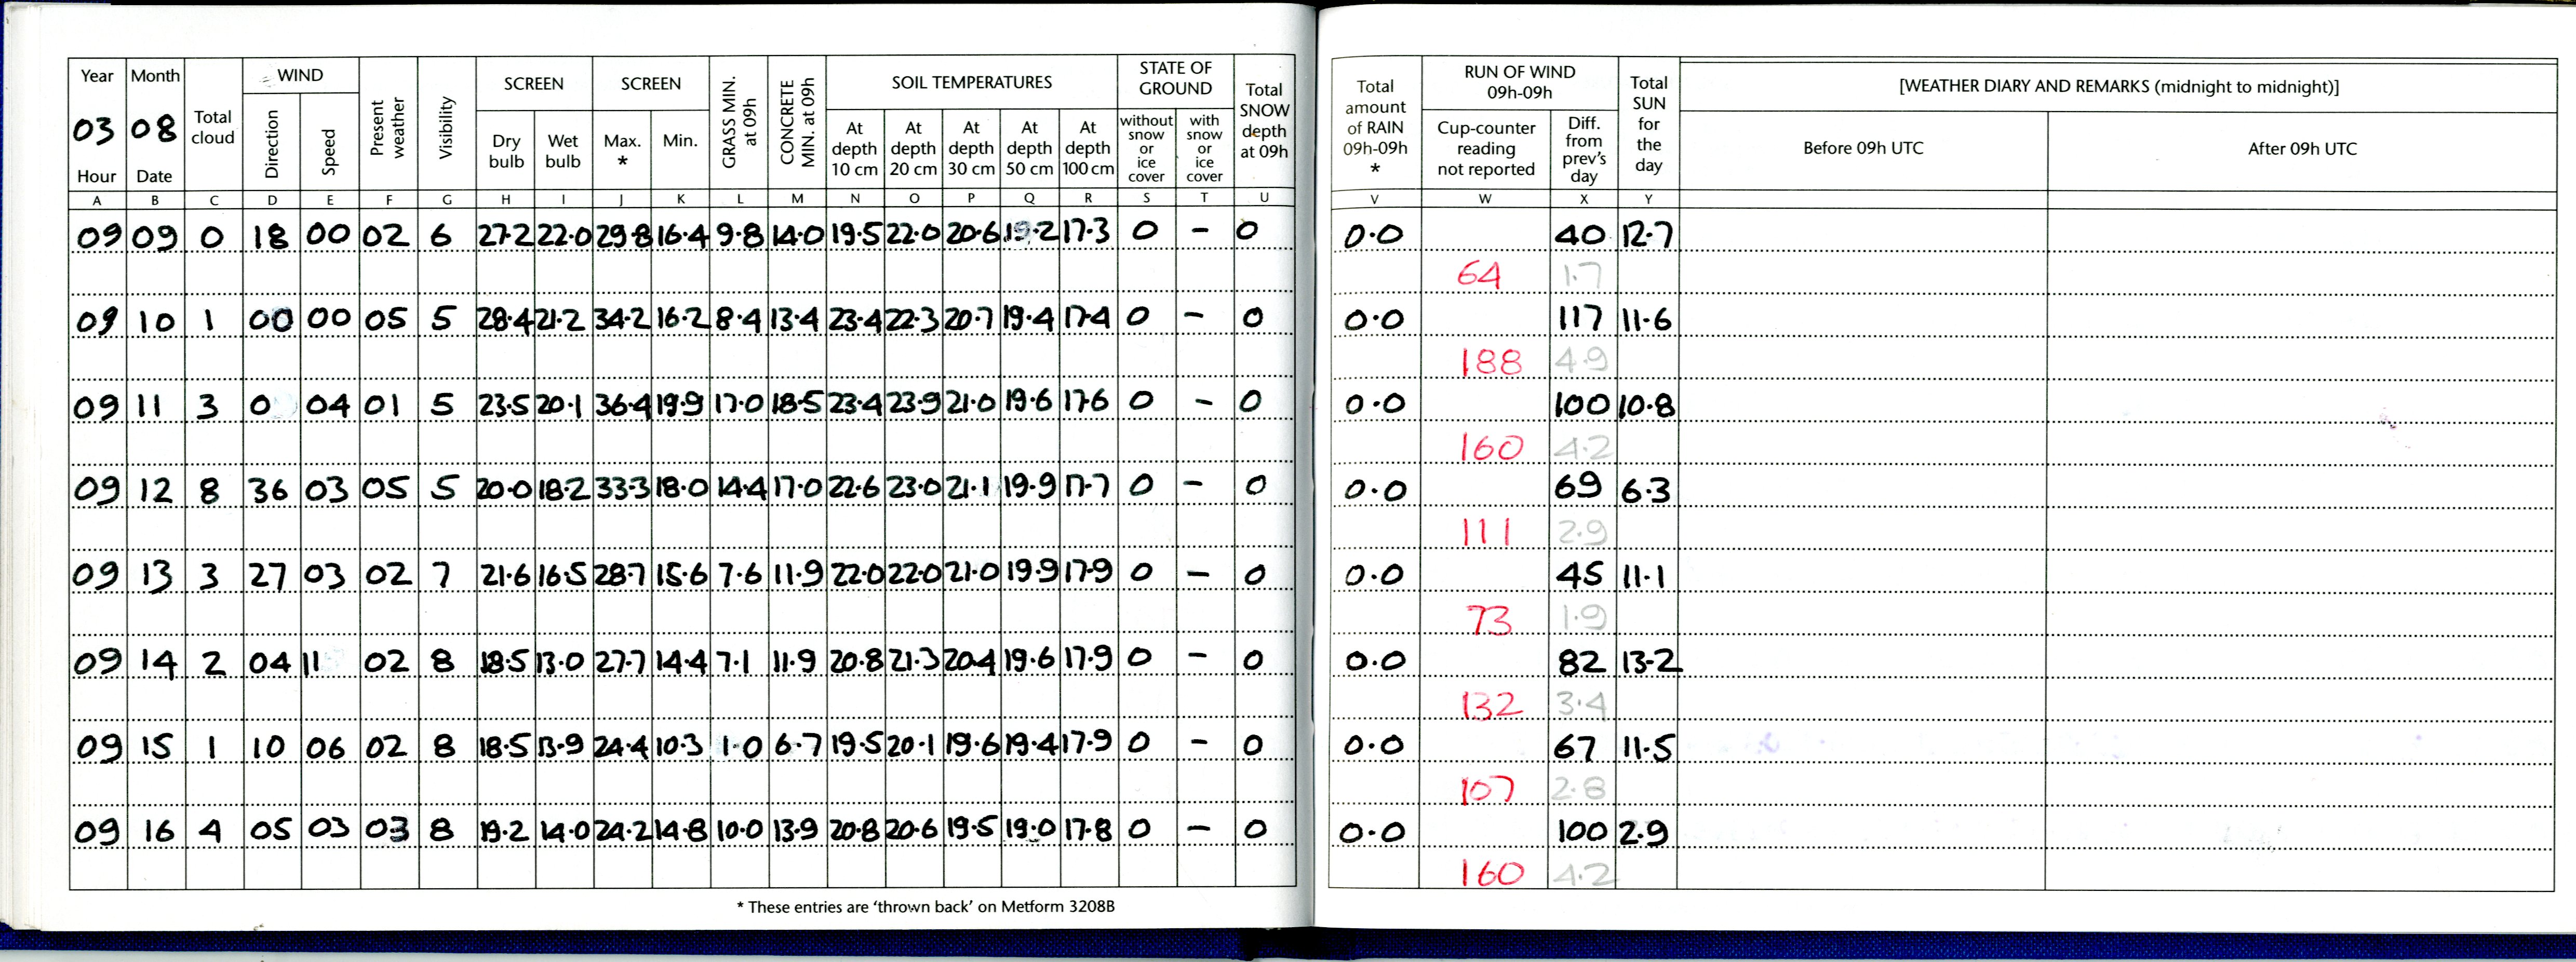 Year Month Total cloud WIND Present weather Visibility SCREEN SCREEN GRASS MIN. at 09h CONCRETE MIN. at 09h SOIL TEMPERATURES STATE OF GROUND Total SNOW depth at 09h Total amount of RAIN 09h-09h * RUN OF WIND 09h-09h Total SUN for the day [WEATHER DIARY AND REMARKS (midnight to midnight)]
03 08 Direction Speed Dry bulb Wet bulb Max. * Min. At depth 10 cm At depth 20 cm At depth 30 cm At depth 50 cm At depth 100 cm without snow or ice cover with snow or ice cover Cup-counter reading not reported Diff. from prev's day Before 09h UTC After 09h UTC
Hour Date
A B C D E F G H I J K L M N O P Q R S T U V W X Y
09 09 0 18 00 02 6 27.2 22.0 29.8 16.4 9.8 14.0 19.5 22.0 20.6 19.2 17.3 0 - 0 0.0 40 12.7
64 1.7
09 10 1 00 00 05 5 28.4 21.2 34.2 16.2 8.4 13.4 23.4 22.3 20.7 19.4 17.4 0 - 0 0.0 117 11.6
188 4.9
09 11 3 0 04 01 5 23.5 20.1 36.4 19.9 17.0 18.5 23.4 23.9 21.0 19.6 17.6 0 - 0 0.0 100 10.8
160 4.2
09 12 8 36 03 05 5 20.0 18.2 33.3 18.0 14.4 17.0 22.6 23.0 21.1 19.9 17.7 0 - 0 0.0 69 6.3
111 2.9
09 13 3 27 03 02 7 21.6 16.5 28.7 15.6 7.6 11.9 22.0 22.0 21.0 19.9 17.9 0 - 0 0.0 45 11.1
73 1.9
09 14 2 04 11 02 8 18.5 13.0 27.7 14.4 7.1 11.9 20.8 21.3 20.4 19.6 17.9 0 - 0 0.0 82 13.2
132 3.4
09 15 1 10 06 02 8 18.5 13.9 24.4 10.3 1.0 6.7 19.5 20.1 19.6 19.4 17.9 0 - 0 0.0 67 11.5
107 2.8
09 16 4 05 03 03 8 19.2 14.0 24.2 14.8 10.0 13.9 20.8 20.6 19.5 19.0 17.8 0 - 0 0.0 100 2.9
160 4.2
* These entries are 'thrown back' on Metform 3208B